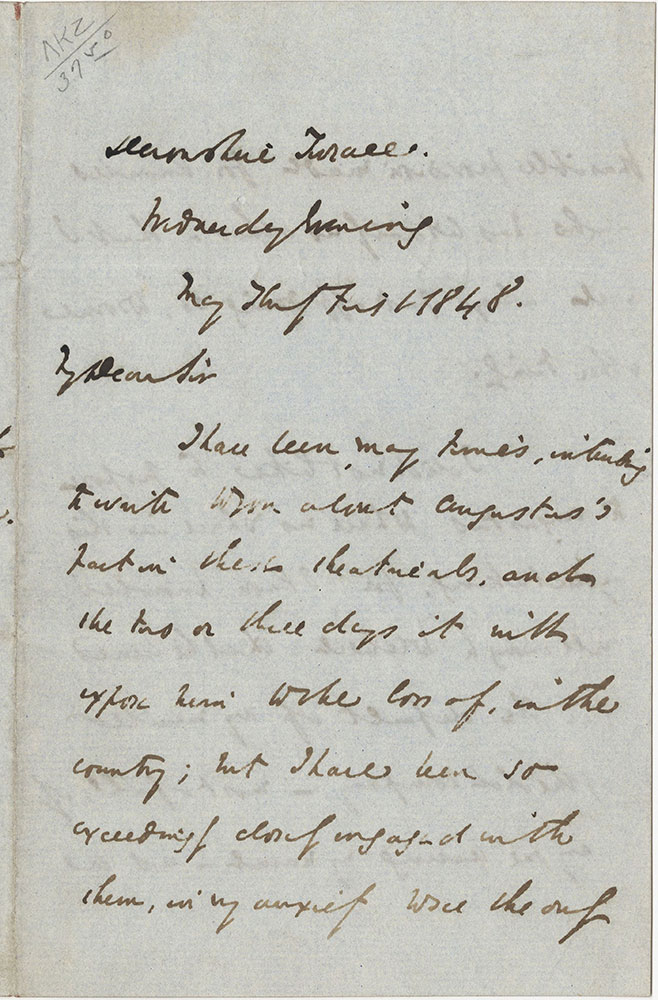 AKZ
3750
Devonshire Terrace.
Wednesday Evening
May Thirty First 1848.
My Dear Sir
I have been, many times, intending
to write to you about Augustus's
part in these theatricals, and
the two or three days it will
expose him to the loss of, in the
country; but I have been so
exceedingly closely engaged with
them, in my anxiety to see the only